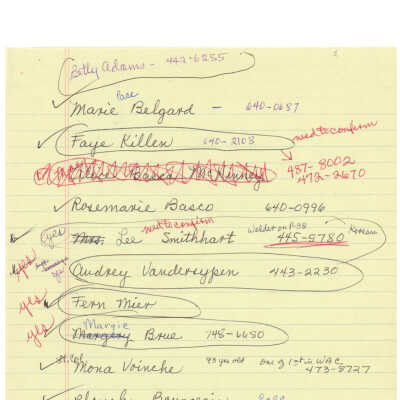 Betty Adams - 442-6255
Pace
Marie Belgard - 640-0687
Faye Killen 640-2103
need to confirm
Basco McKinney 487-8002
472-2670
Rosemarie Basco 640-0996
need to confirm
(yes) Mrs. Lee Smithhart 445-5780 Korean
yes Audrey Vandersypen 443-2230
yes Fern Mier
Margie
yes Margery Brue 748-6650
Lt. Col. 93 yrs old One of 1st in WAC
Mona Voinche 473-8727